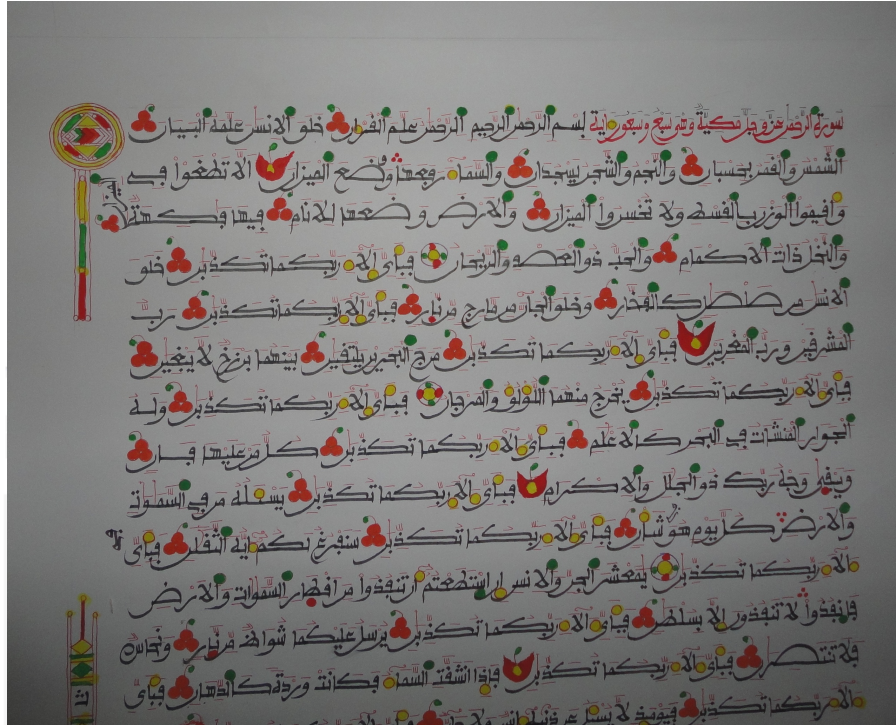 سورة الرحمن عز وجل مكية وهي سبع وسبعون اية بسم الرحمن الرحيم الرحمن علم القران خلق الانسن علمه البيان
الشمس والقمر بحسبان والنجم والشجر يسجدان والسماء رفعها ووضع الميزان الا تطغوا في
الميزان
واقيموا الوزن بالقسط ولا تخسروا الميزان والارض وضعها للانام فيها فكهة
والنخل ذات الاكمام والحب ذو العصف والريحان فباي الاء ربكما تكذبن خلق
الانسن من صلصل كالفخار وخلق الجان من مارج من نار فباي الاء ربكما تكذبن رب
المشرقين ورب المغربين فباي الاء ربكما تكذبن مرج البحرين يلتقين بينهما برزخ لا يبغين
فباي الاء ربكما تكذبن يخرج منهما اللؤلؤ والمرجان فباي الاء ربكما تكذبن وله
الجوار المنشات في البحر كالاعلم فباي الاء ربكما تكذبن كل من عليها فان
ويبقى وجه ربك ذو الجلل والاكرام فباي الاء ربكما تكذبن يسئله من في السموت
والارض كل يوم هو في شان فباي الاء ربكما تكذبن سنفرغ لكم ايه الثقلن فباي
الاء ربكما تكذبن يمعشر الجن والانس ان استطعتم ان تنفذوا من اقطار السموات والارض
فانفذوا لا تنفذون الا بسلطن فباي الاء ربكما تكذبن يرسل عليكما شواظ من نار ونحاس
فلا تنتصرن فباي الاء ربكما تكذبن فاذا انشقت السماء فكانت وردة كالدهان فباي
الاء ربكما تكذبن فيومئذ لا يسئل عن ذنبه انس ولا جان